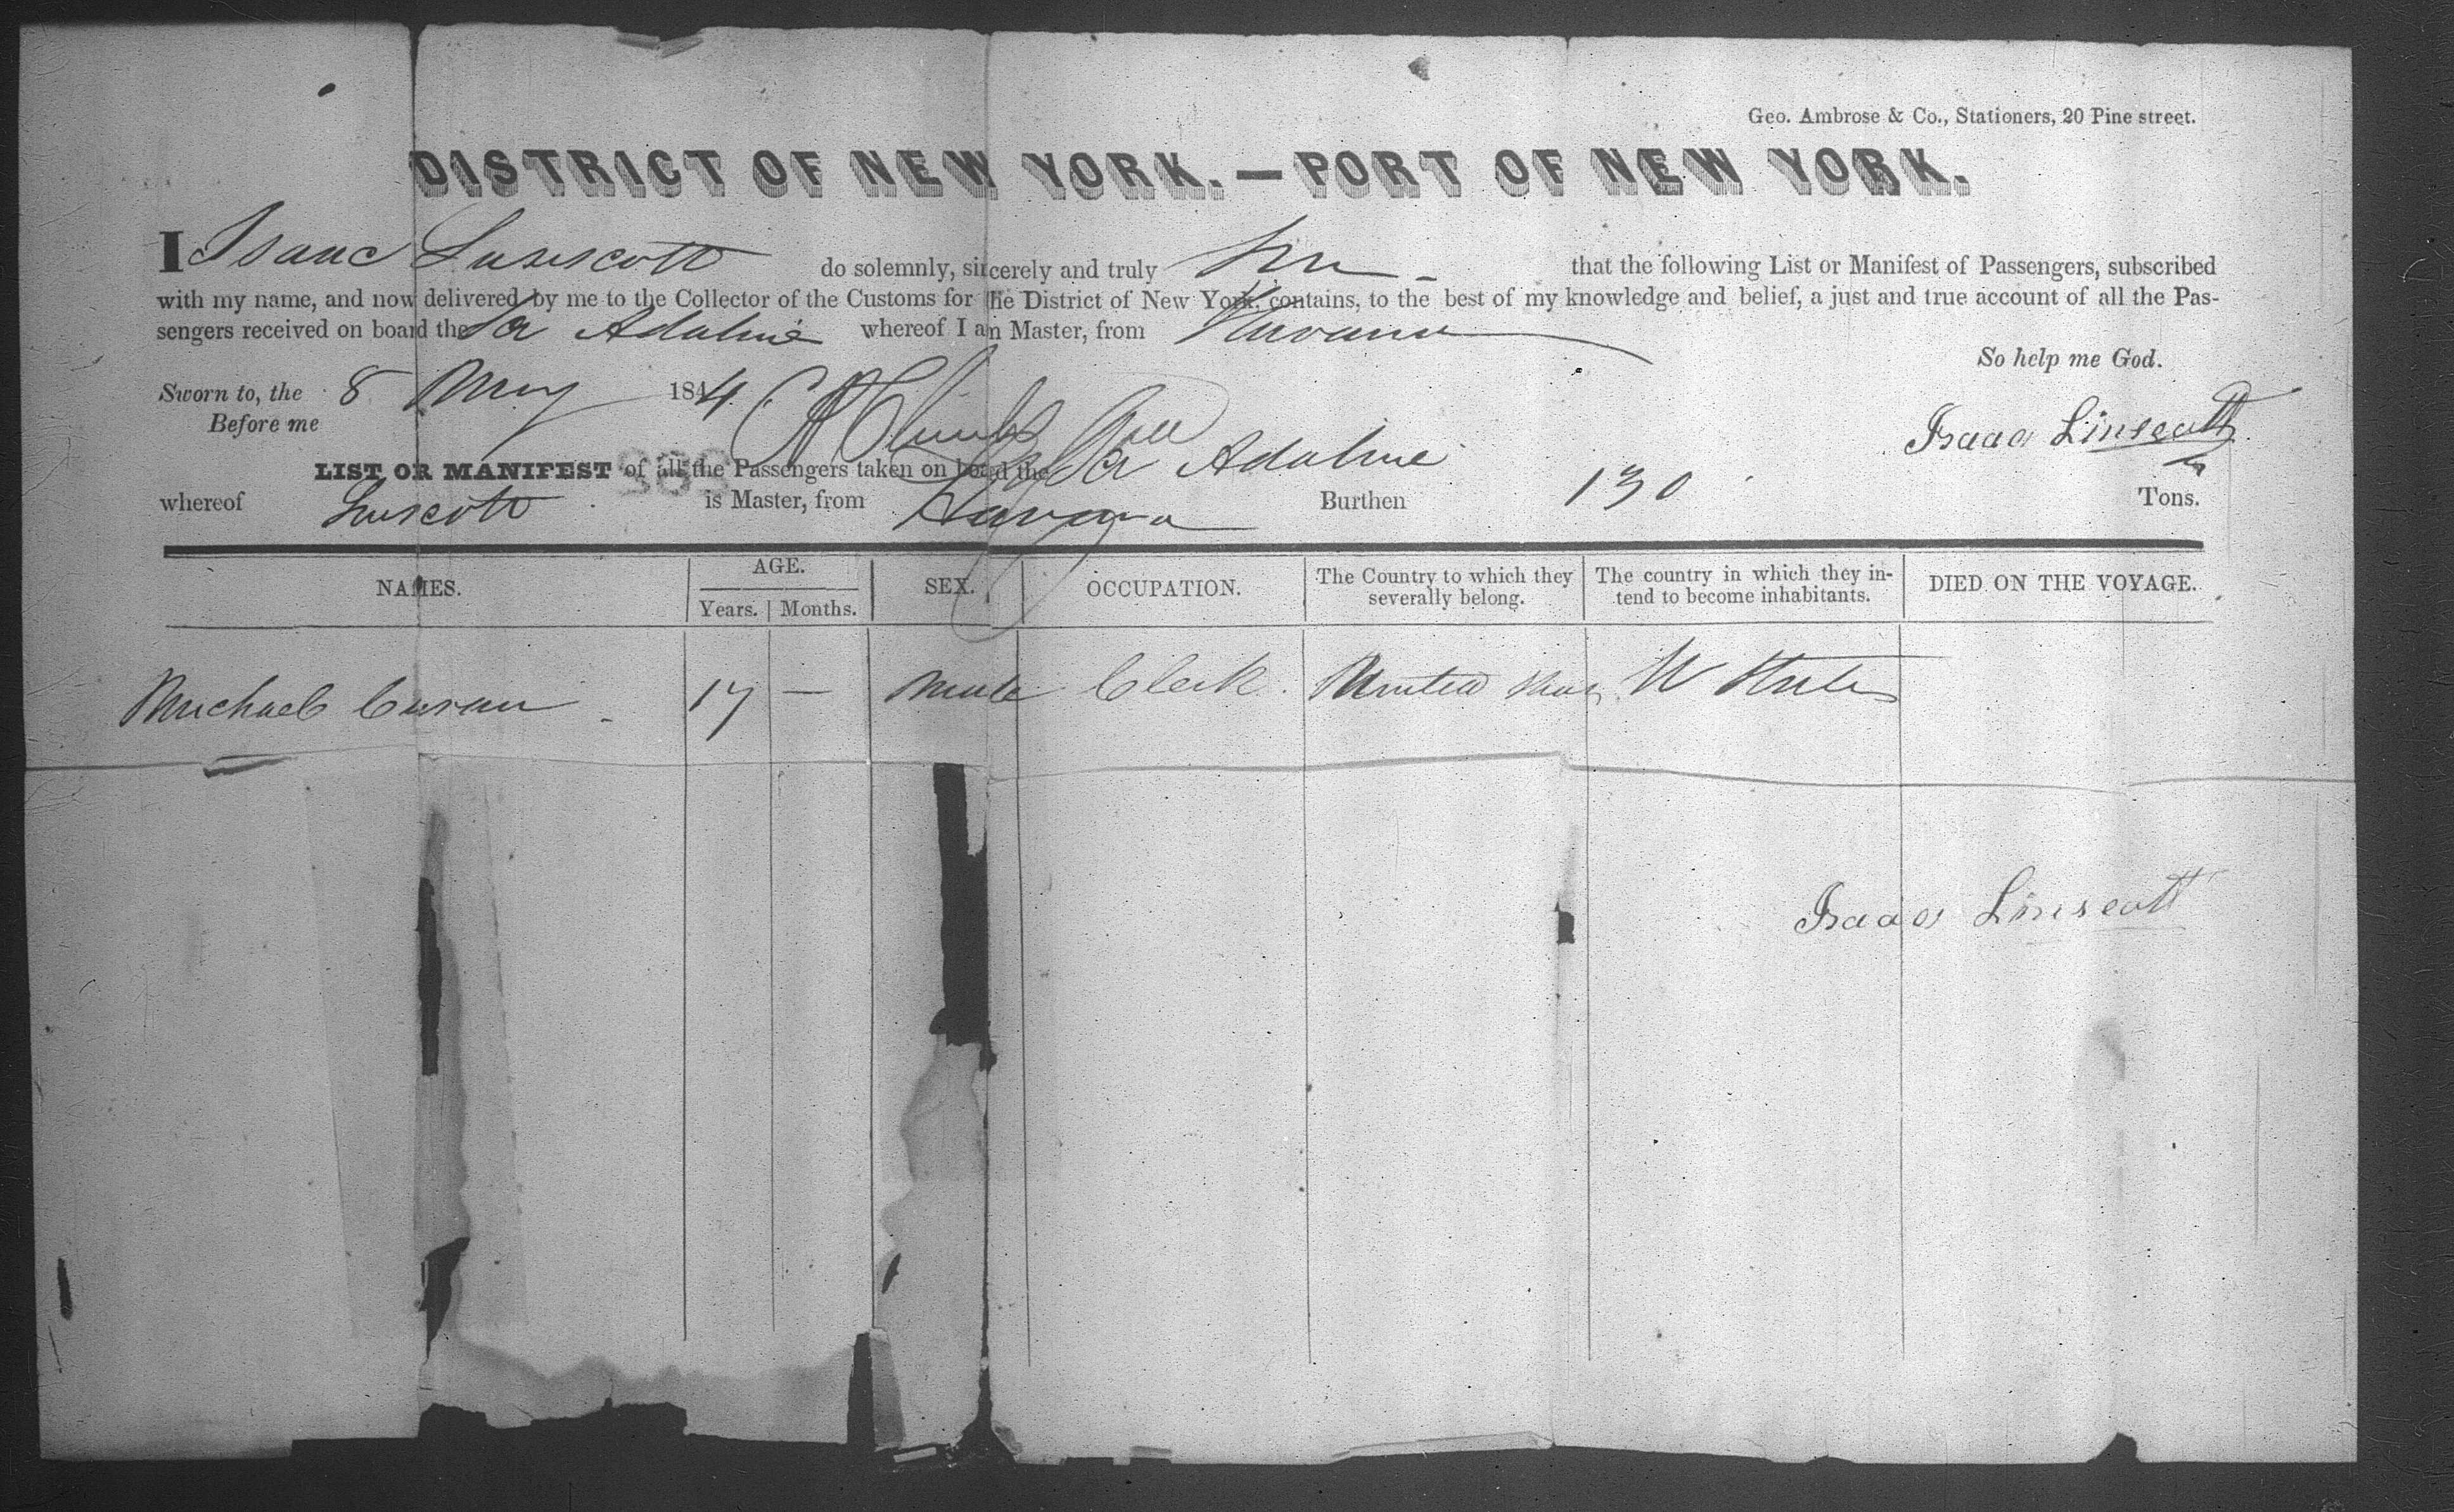 Geo. Ambrose & Co., Stationers, 20 Pine street.
DISTRICT OF NEW YORK.—PORT OF NEW YORK.
I Isaac Linscott do solemnly, sincerely and truly that the following List or Manifest of Passengers, subscribed
with my name, and now delivered by me to the Collector of the Customs for the District of New York, contains, to the best of my knowledge and belief, a just and true account of all the Pas-
sengers received on board the Adaline whereof I am Master, from Havana
So help me God.
Sworn to, the 8 May 1844
Isaac Linscott
Before me
LIST OR MANIFEST of all the Passengers taken on board the Adaline
whereof Linscott is Master, from Havana Burthen 130 Tons.
NAMES. AGE. SEX. OCCUPATION. The Country to which they severally belong. The country in which they in-tend to become inhabitants. DIED ON THE VOYAGE.
Years. Months.
Michael Curan 17 — Male Clerk United States U States
Isaac Linscott